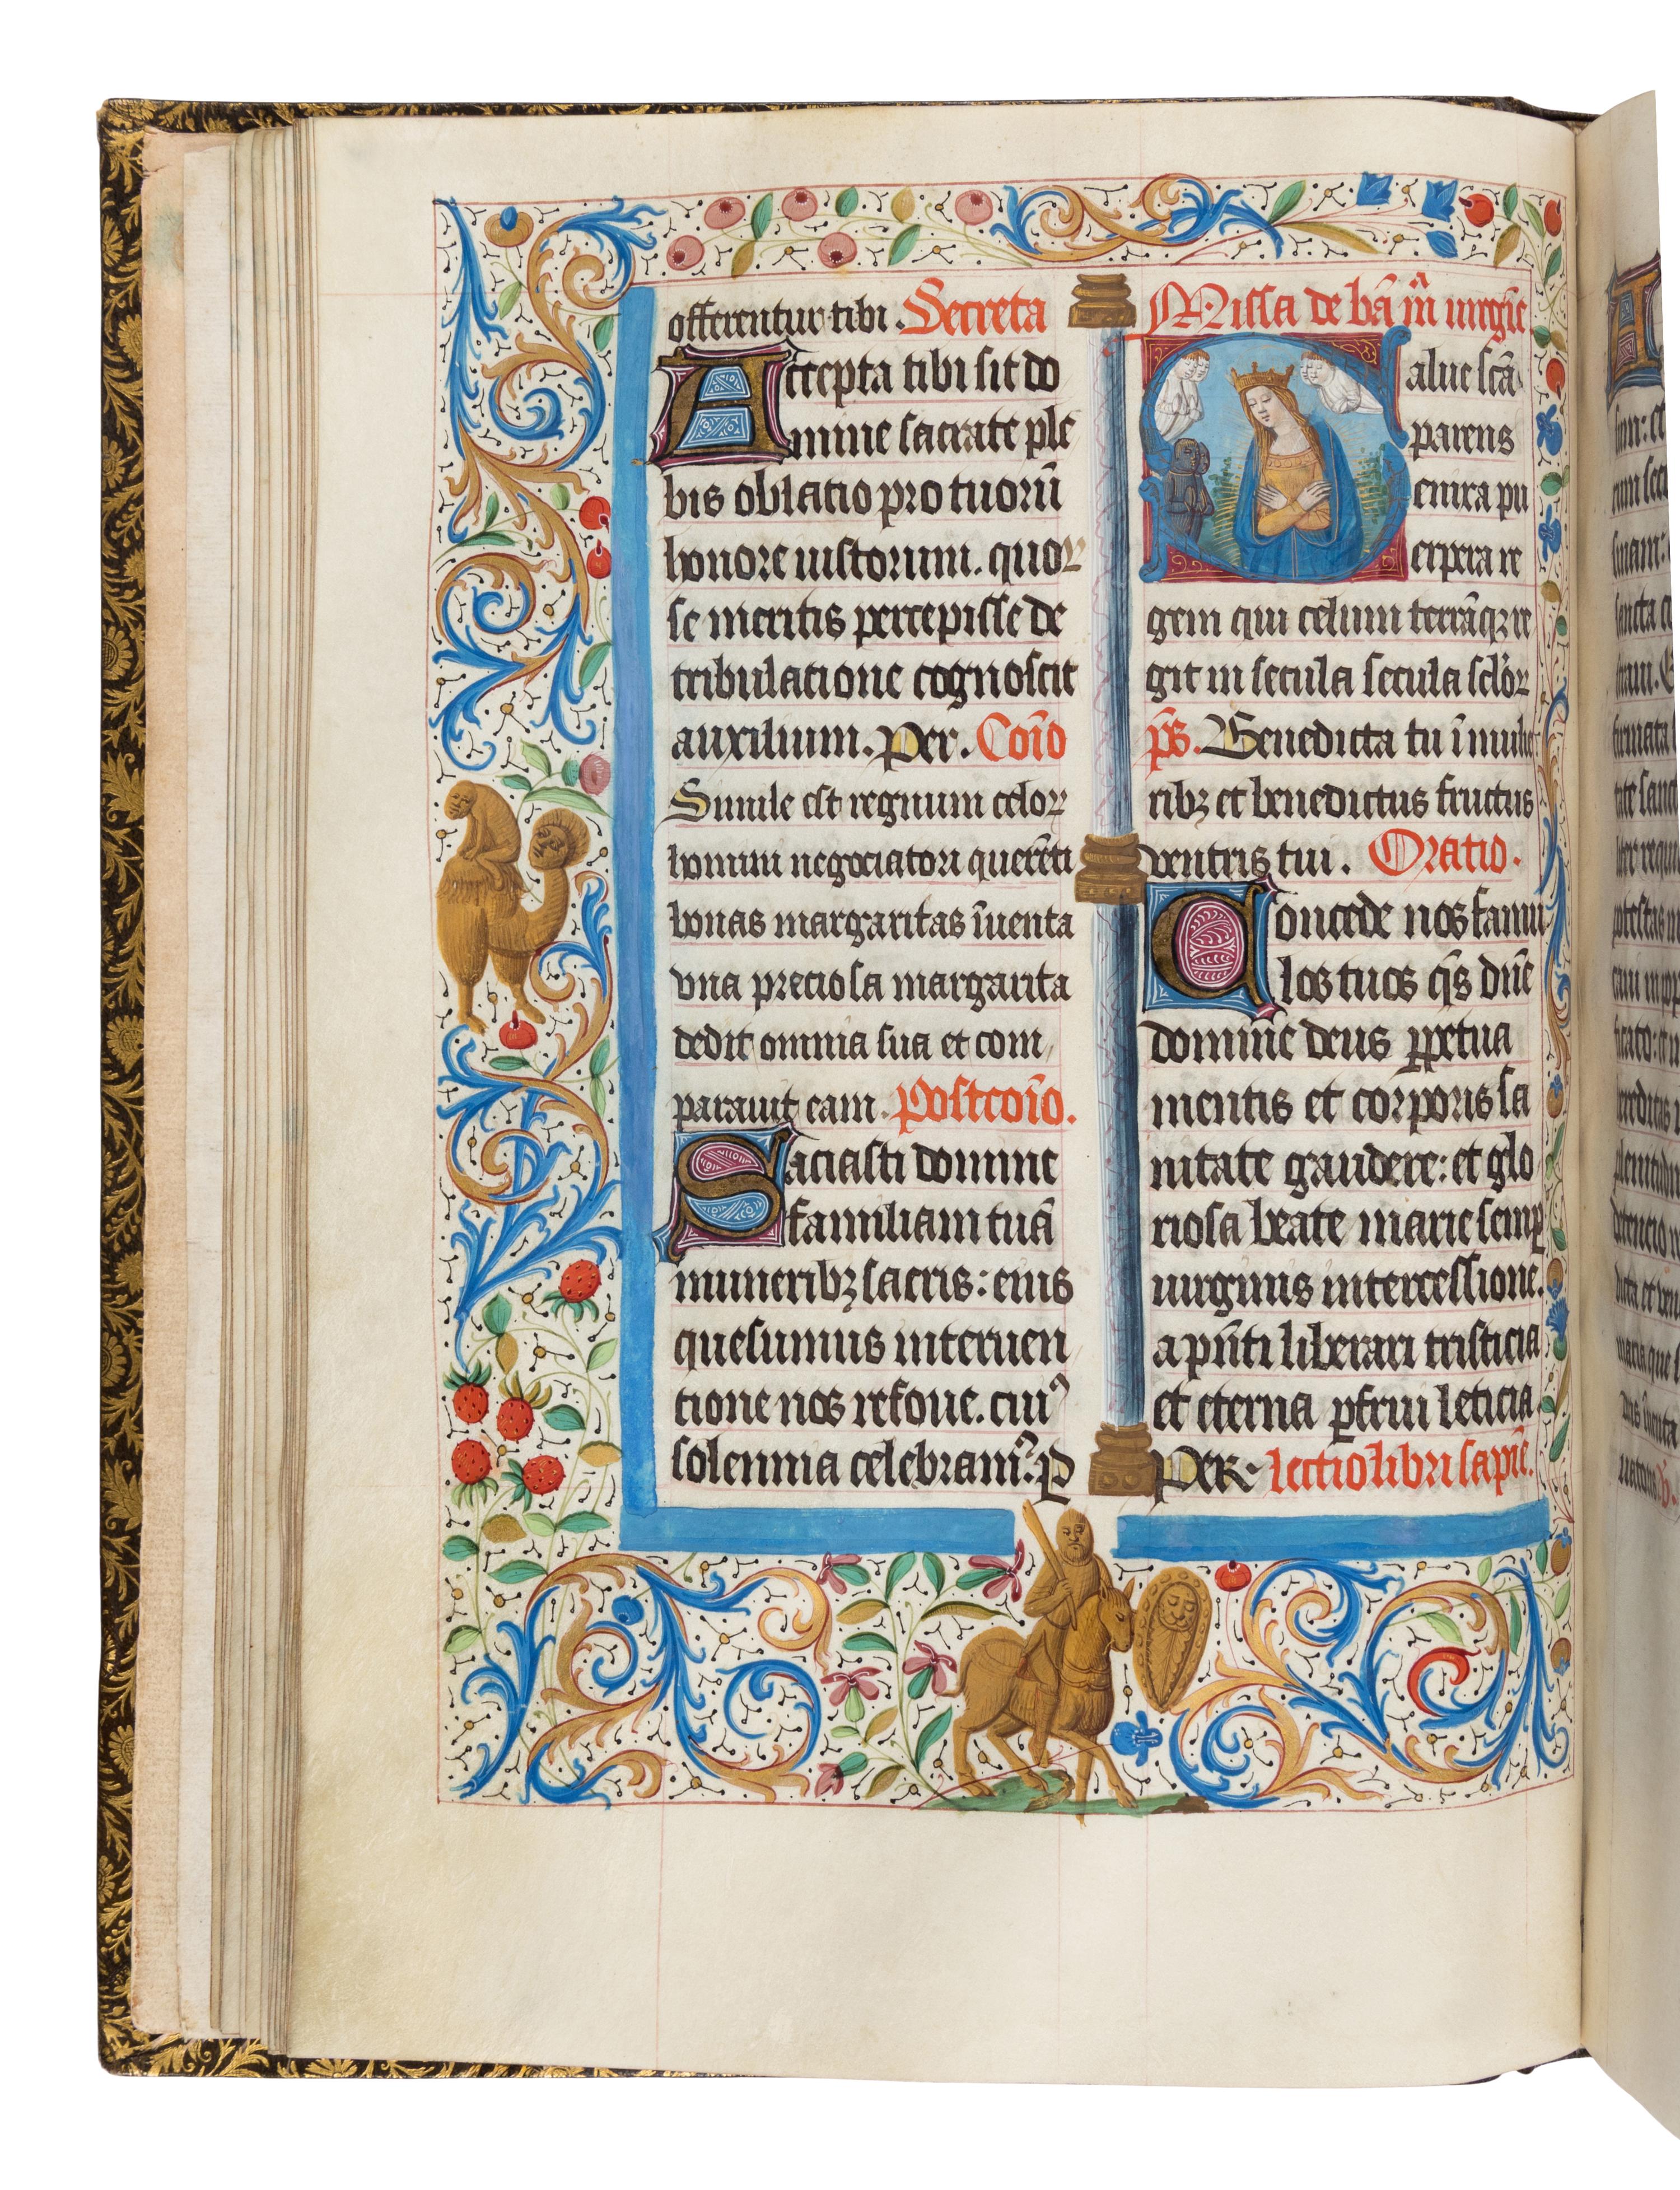 offerentur tibi. Secreta
Accepta tibi sit do
mine sacrate ple
bis oblatio pro tuorũ
honore iustorum. quoꝝ
se meritis percepisse de
tribulacione cognoscit
auxilium. Per. Coĩo
Simile est regnum celoꝝ
homini negociatori querẽti
bonas margaritas ĩuenta
vna preciosa margarita
dedit omnia sua et com
parauit eam. Postcoĩo.
Saciasti domine
familiam tuã
muneribꝫ sacris: eius
quesumus interuen
tione nos refoue. cuiꝰ
solennia celebramꝰ. p̲
Missa de bã m̃ uirgiẽ
Salue scã
parens
enixa pu
erpera re
gem qui celum terrãqꝫ re
git in secula secula sclõꝝ
p̃s. Benedicta tu ĩ mulie
ribꝫ et benedictus fructus
ventris tui. Oratio.
Concede nos famu
los tuos q̃s dñe
domine deus ꝑpetua
mentis et corporis sa
nitate gaudere: et glo
riosa beate marie semꝑ
uirginis intercessione.
a pñti liberari tristicia
et eterna ꝑfrui leticia
Per. lectio libri sapiẽ.